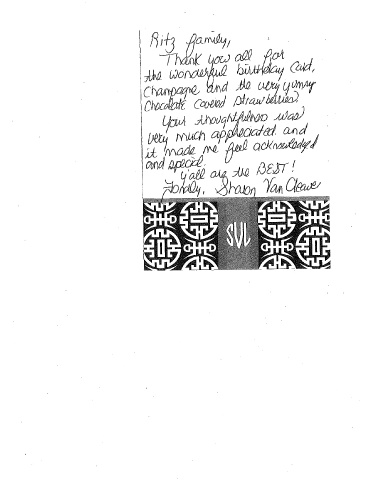 Ritz family,
Thank you all for
the wonderful birthday card,
Champagne and the very yummy
Chocolate Covered Strawberries!
Your thoughtfulness was
very much appreciated and
it made me feel acknowledged
and special.
Y'all are the BEST!
Fondly, Sharon Van Cleave
SVL